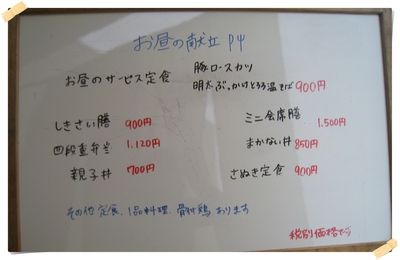 お昼の献立
お昼のサービス定食
豚ロースカツ
明太ぶっかけとろろ温そば 900円
しきさい膳 900円
四段重弁当 1.120円
親子丼 700円
ミニ会席膳 1.500円
まかない丼 850円
さぬき定食 900円
その他 定食、1品料理、骨付鶏 あります
税別価格です